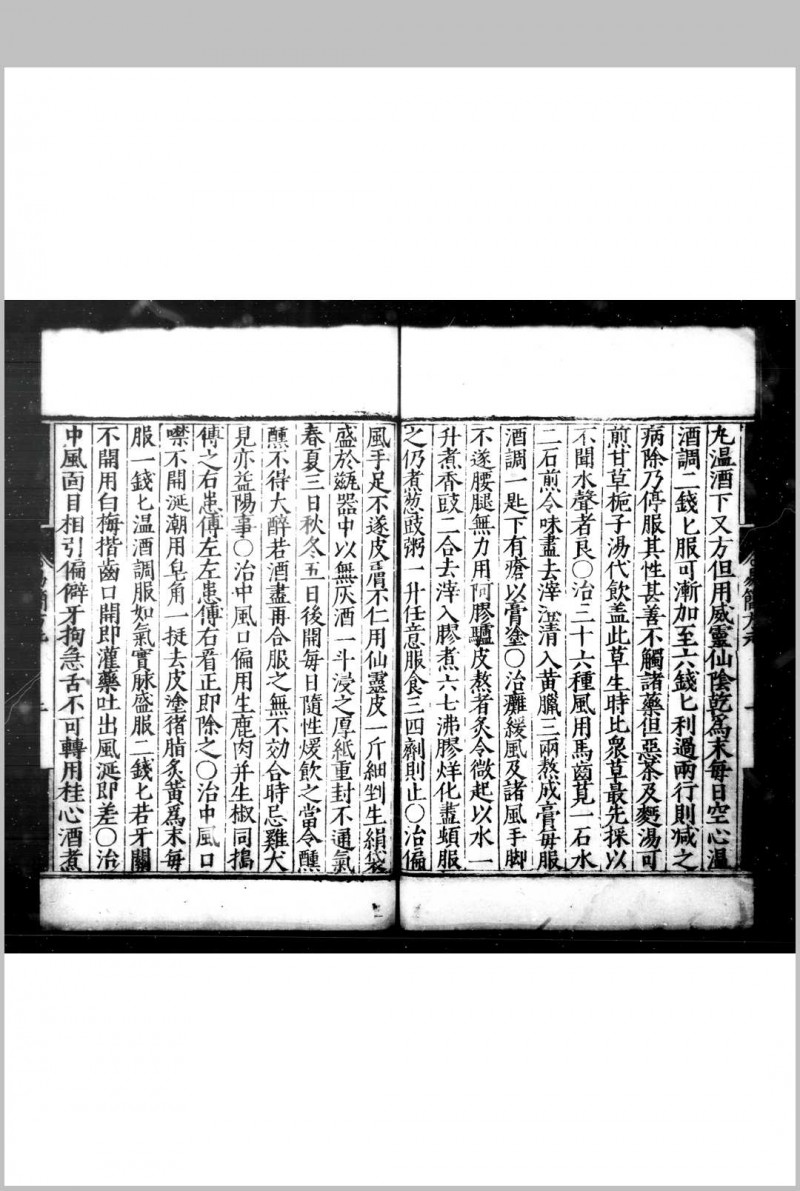 丸温酒下又方但用威靈仙陰乾爲末每日空心温
酒調一錢匕服可漸加至六錢匕利過兩行則减之
病除乃停服其性甚善不觸諸藥但惡茶及麪湯可
煎甘草梔子湯代飲盖此草生時比衆草最先採以
不聞水聲者良○治三十六種風用馬齒莧一石水
二石煎令味盡去滓澄清入黄臘三兩熬成膏每服
酒調一匙下有瘡以膏塗○治癱緩風及諸風手脚
不遂腰腿無力用阿膠驢皮熬者炙令微起以水一
升煮香豉二合去滓入膠煮六七沸膠烊化盡頓服
之仍煮葱豉粥一升任意服食三四劑則止○治偏
風手足不遂皮膚不仁用仙靈皮一斤細剉生絹袋
盛於甆器中以無灰酒一斗浸之厚紙重封不通氣
春夏三日秋冬五日後開每日隨性煖飲之當令醺
醺不得大醉若酒盡再合服之無不効合時忌雞犬
見亦益陽事○治中風口偏用生鹿肉并生椒同搗
傅之右患傅左左患傅右看正即除之○治中風口
噤不開涎潮用皂角一挺去皮塗猪脂炙黄爲末每
服一錢匕温酒調服如氣實脉盛服二錢匕若牙關
不開用白梅揩齒口開即灌藥吐出風涎即差○治
中風面目相引偏僻牙拘急舌不可轉用桂心酒煮